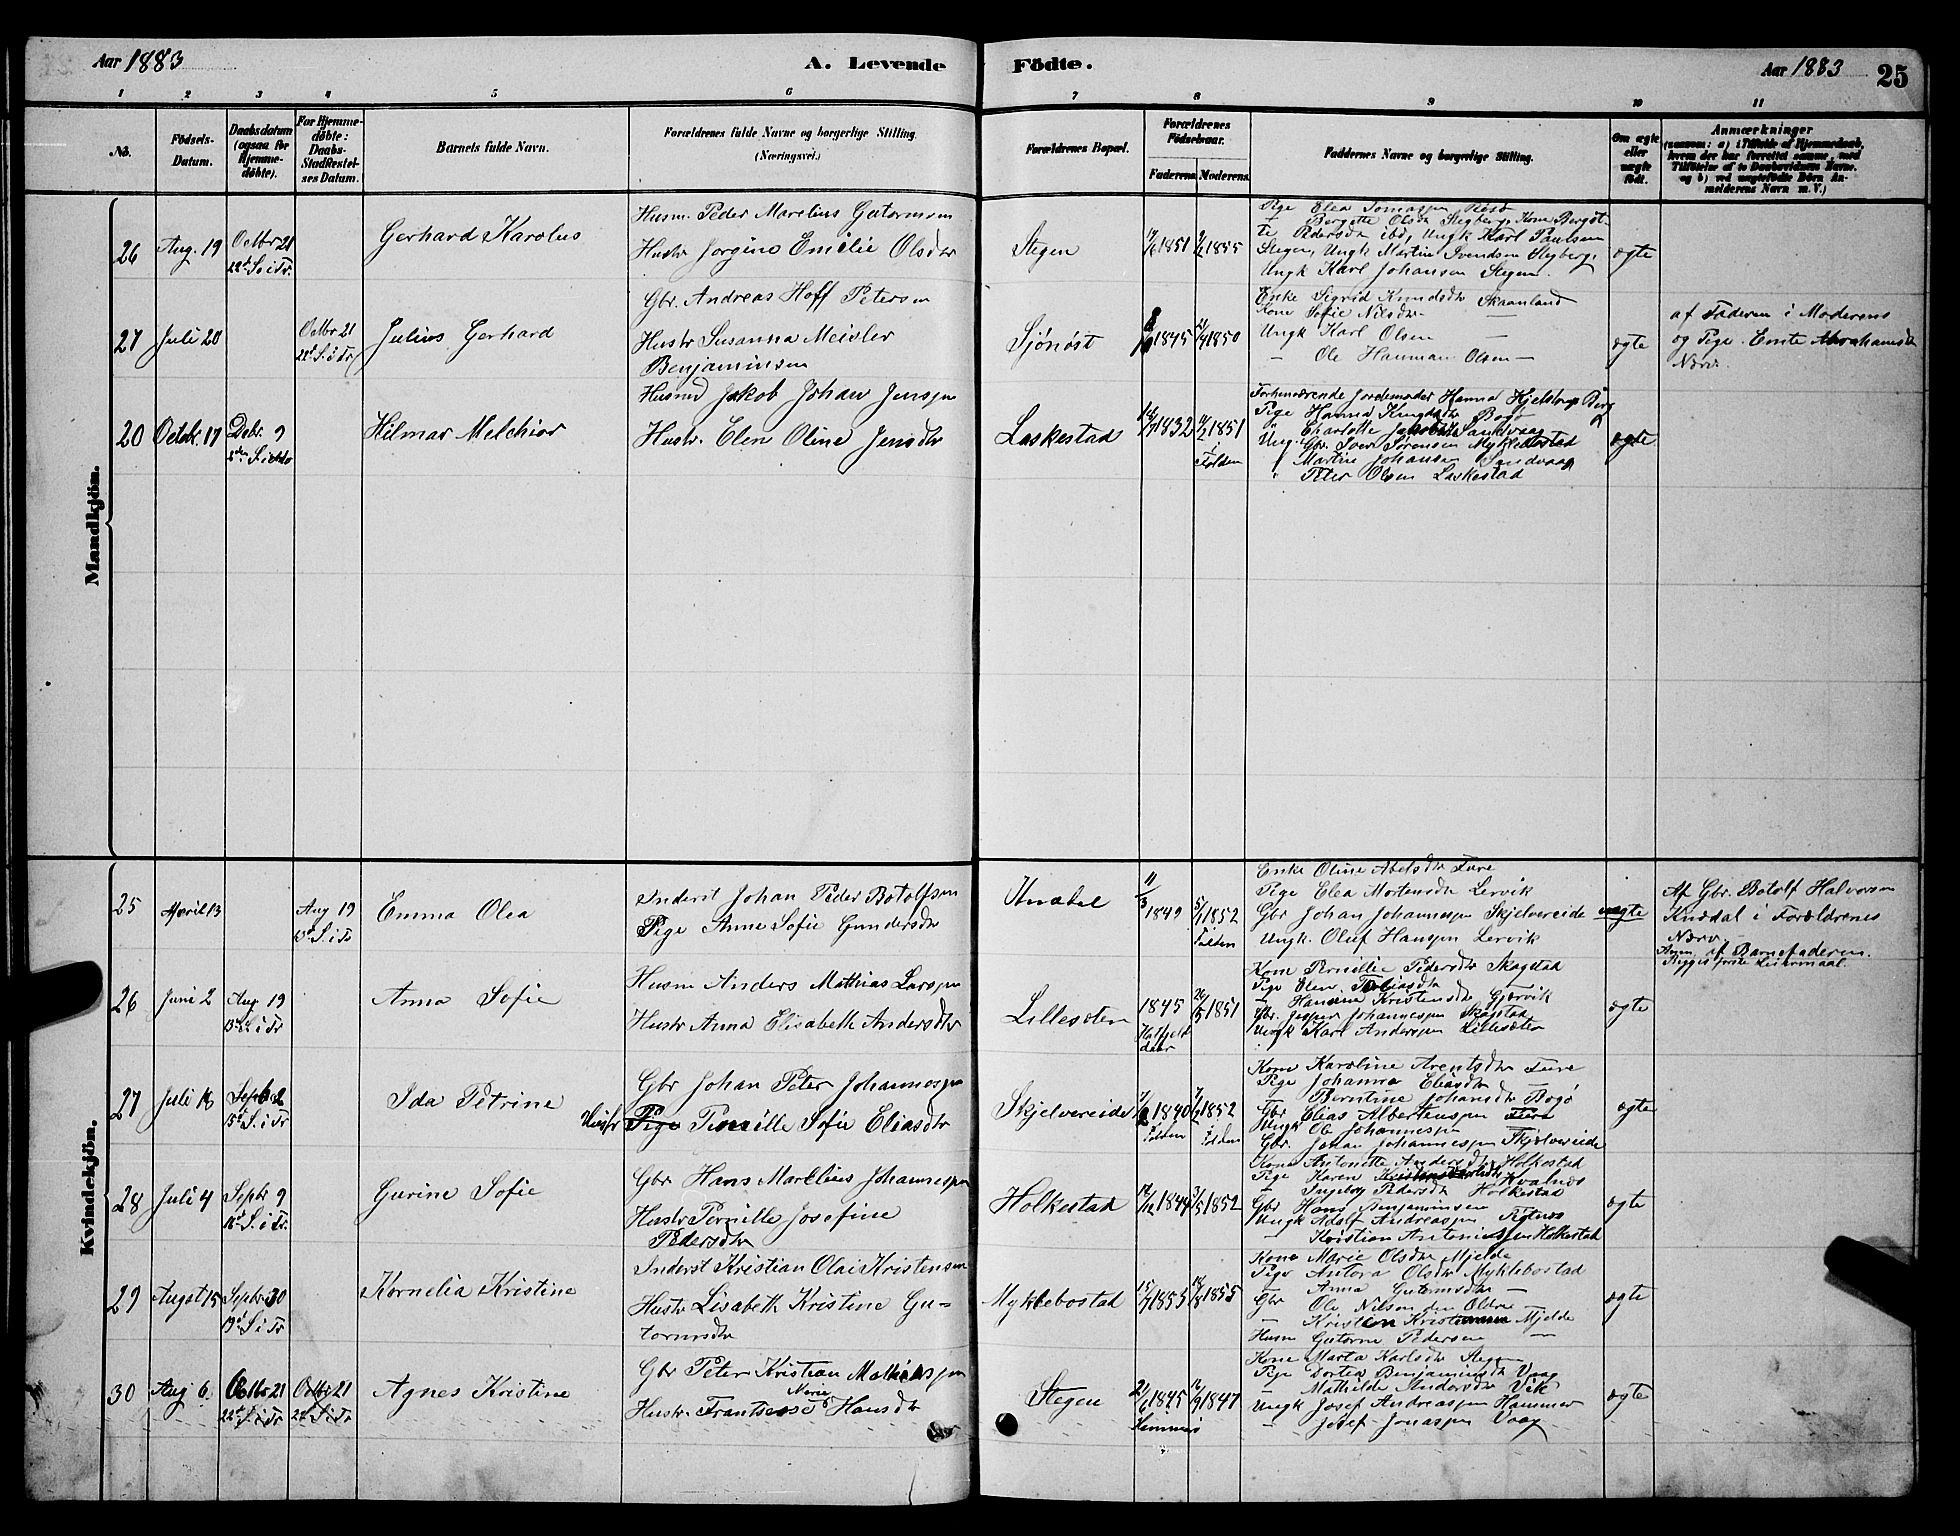 Aar 1883
A. Levende
Födte.
Aar 1883
25
1 2 3 4 5 6 7 8 9 10 11
No.
Födsels-
Datum.
Daabsdatum
(ogsaa for
Hjemme-
döbte).
For Hjemme-
döbte:
Daabs-
Stadfæstel-
ses Datum.
Barnets fulde Navn.
Forældrenes fulde Navne og borgerlige Stilling.
(Næringsvei.)
Forældrenes Bopæl.
Forældrenes
Födselsaar.
Faderens
Moderens
Faddernes Navne og borgerlige Stilling.
Om ægte
eller
uægte
födt.
Anmærkninger
(saasom: a) i Tilfælde af Hjemmedaab,
hvem der har forrettet samme, med
Tilföielse af to Daabsvidners Navne,
og b) ved uægtefödte Börn An-
melderens Navn m. V.)
Mandkjön.
26
Aug. 19
Octbr 21
22d S. i Tr.
Gerhard Karolus
Husm Peder Marelius Gutormsen
Hustr Jorgine Emilie Olsdtr
Stegen
1851
1855
Pige Elea
Bergette Olsdtr Stegberg, Kone Bergit-
te Pedersdtr ibd, Ungk Karl Paulsen
Stegen, Ungk Martin Svendsen Stegberg,
Ungk Karl Johansen Stegen.
ægte
27
Juli 20
Octbr 21
22d S. i Tr
Julius Gerhard
Gbr. Andreas Hoff Petersen
Hustr Susanna Meisler
Benjaminsen
Sjönöst
1845
1850
Enke Sigrid Knudsdtr Skaanland
Kone Sofie Nilsdtr —
Ungk Karl Olsen —
— Ole Hanman Olsen —
ægte
af Faderen i Moderens
og Pige Ente Abrahamsdtr
Nærv.
20
Octbr 17
Debr. 9
Hilmar Melchior
Husmd Jakob Johan Jenssen
Hustr. Elen Oline Jensdtr
Laskestad
1832
1851
Folden
Forhenværende Jordemoder Hanna Hjelstrup Borg
Pige Hanna Knudsdtr Borg
Charlotte Jakobsdtr Sandvaag
Gbr. Iver Sørensen Myklebostad
Martin Johansen Sandvaag
Peter Olsen Laskestad
ægte
Kvindekjön.
25
April 13
Aug 19
13d S. i Tr
Emma Olea
Inderst Johan Peder Botolfsen
Pige Anne Sofie Gundersdtr
11/3 1849
5/1 1852
Folden
Enke Oline Abelsdtr Fure
Pige Elea Mortensdtr Lervik
Gbr Johan Johannessen Skjelvereide
Ungk. Oluf Hanssen Lervik
uægte
Af Gbr. Botolf Halvorsen
Knædal i Forældrenes
Nærv.
Anm. af Barnefaderen.
Begges første Leiermaal.
26
Juni 2
Aug 19
13d S. i Tr
Anna Sofie
Husm Anders Mathias Larssen
Hustr Anna Elisabeth Andersdtr
Lillesæten
1845
Hatfjeld
dalen
1851
Kone Pernille Pedersdtr Skagstad
Pige Elen Tobiasdtr
— Hansine Kristensdtr Gjærvik
Gbr. Jesper Johannessen Skagstad
Ungk Karl Anderssen Lillesæten
ægte
27
Juli 18
Septb 2
15d S. i Tr
Ida Petrine
Gbr Johan Peter Johannessen
Hustr Pige Pernille Sofie Eliasdtr
Skjelvereide
1840
Folden
1852
Folden
Kone Karoline Arentsdtr Fure
Pige Johanna Eliasdtr
Berntine Johansdtr Bogø
Gbr Elias Albertsen
Ungk Ole Johannessen
Gbr. Johan Johannessen Skjelvereide
ægte
28
Juli 4
Septbr 9
16d S. i Tr
Gurine Sofie
Gbr Hans Marelius Johannessen
Hustr Pernille Josefine
Pedersdtr
Holkestad
1844
3/5 1852
Kone Antonette Andersdtr Holkestad
Pige Karen Kvalnes
— Ingeborg Pedersdtr Holkestad
Gbr Hans Benjaminsen
Ungk Adolf Andreassen
— Kristian Antonissen Holkestad
ægte
29
August 15
Septbr 30
19d S. i Tr
Kornelia Kristine
Inderst Kristian Olai Kristensen
Hustr Lisabeth Kristine Gu-
tormsdtr
Myklebostad
1855
1855
Kone Marie Olsdtr Mjelde
Pige Antora Olsdtr Myklebostad
Anna Gutormsdtr —
Gbr Ole Nilsen den Eldre —
— Kristen Mjelde
Husm Gutorm Pedersen —
ægte
30
Aug 6
Octbr 21
22d S. i Tr
Octbr 21
22d S. i Tr
Agnes Kristine
Gbr Peter Kristian Mathiassen
Marie
Hustr. Frantsesse Hansdtr
Stegen
1845
Hemnes
1847
Kone Marta Karlsdtr Stegen
Pige Dortea Benjaminsdtr Vaag
— Mathilde Andersdtr Vik
Ungk Josef Andreassen Hammer
— Josef Jonassen Vaag
ægte